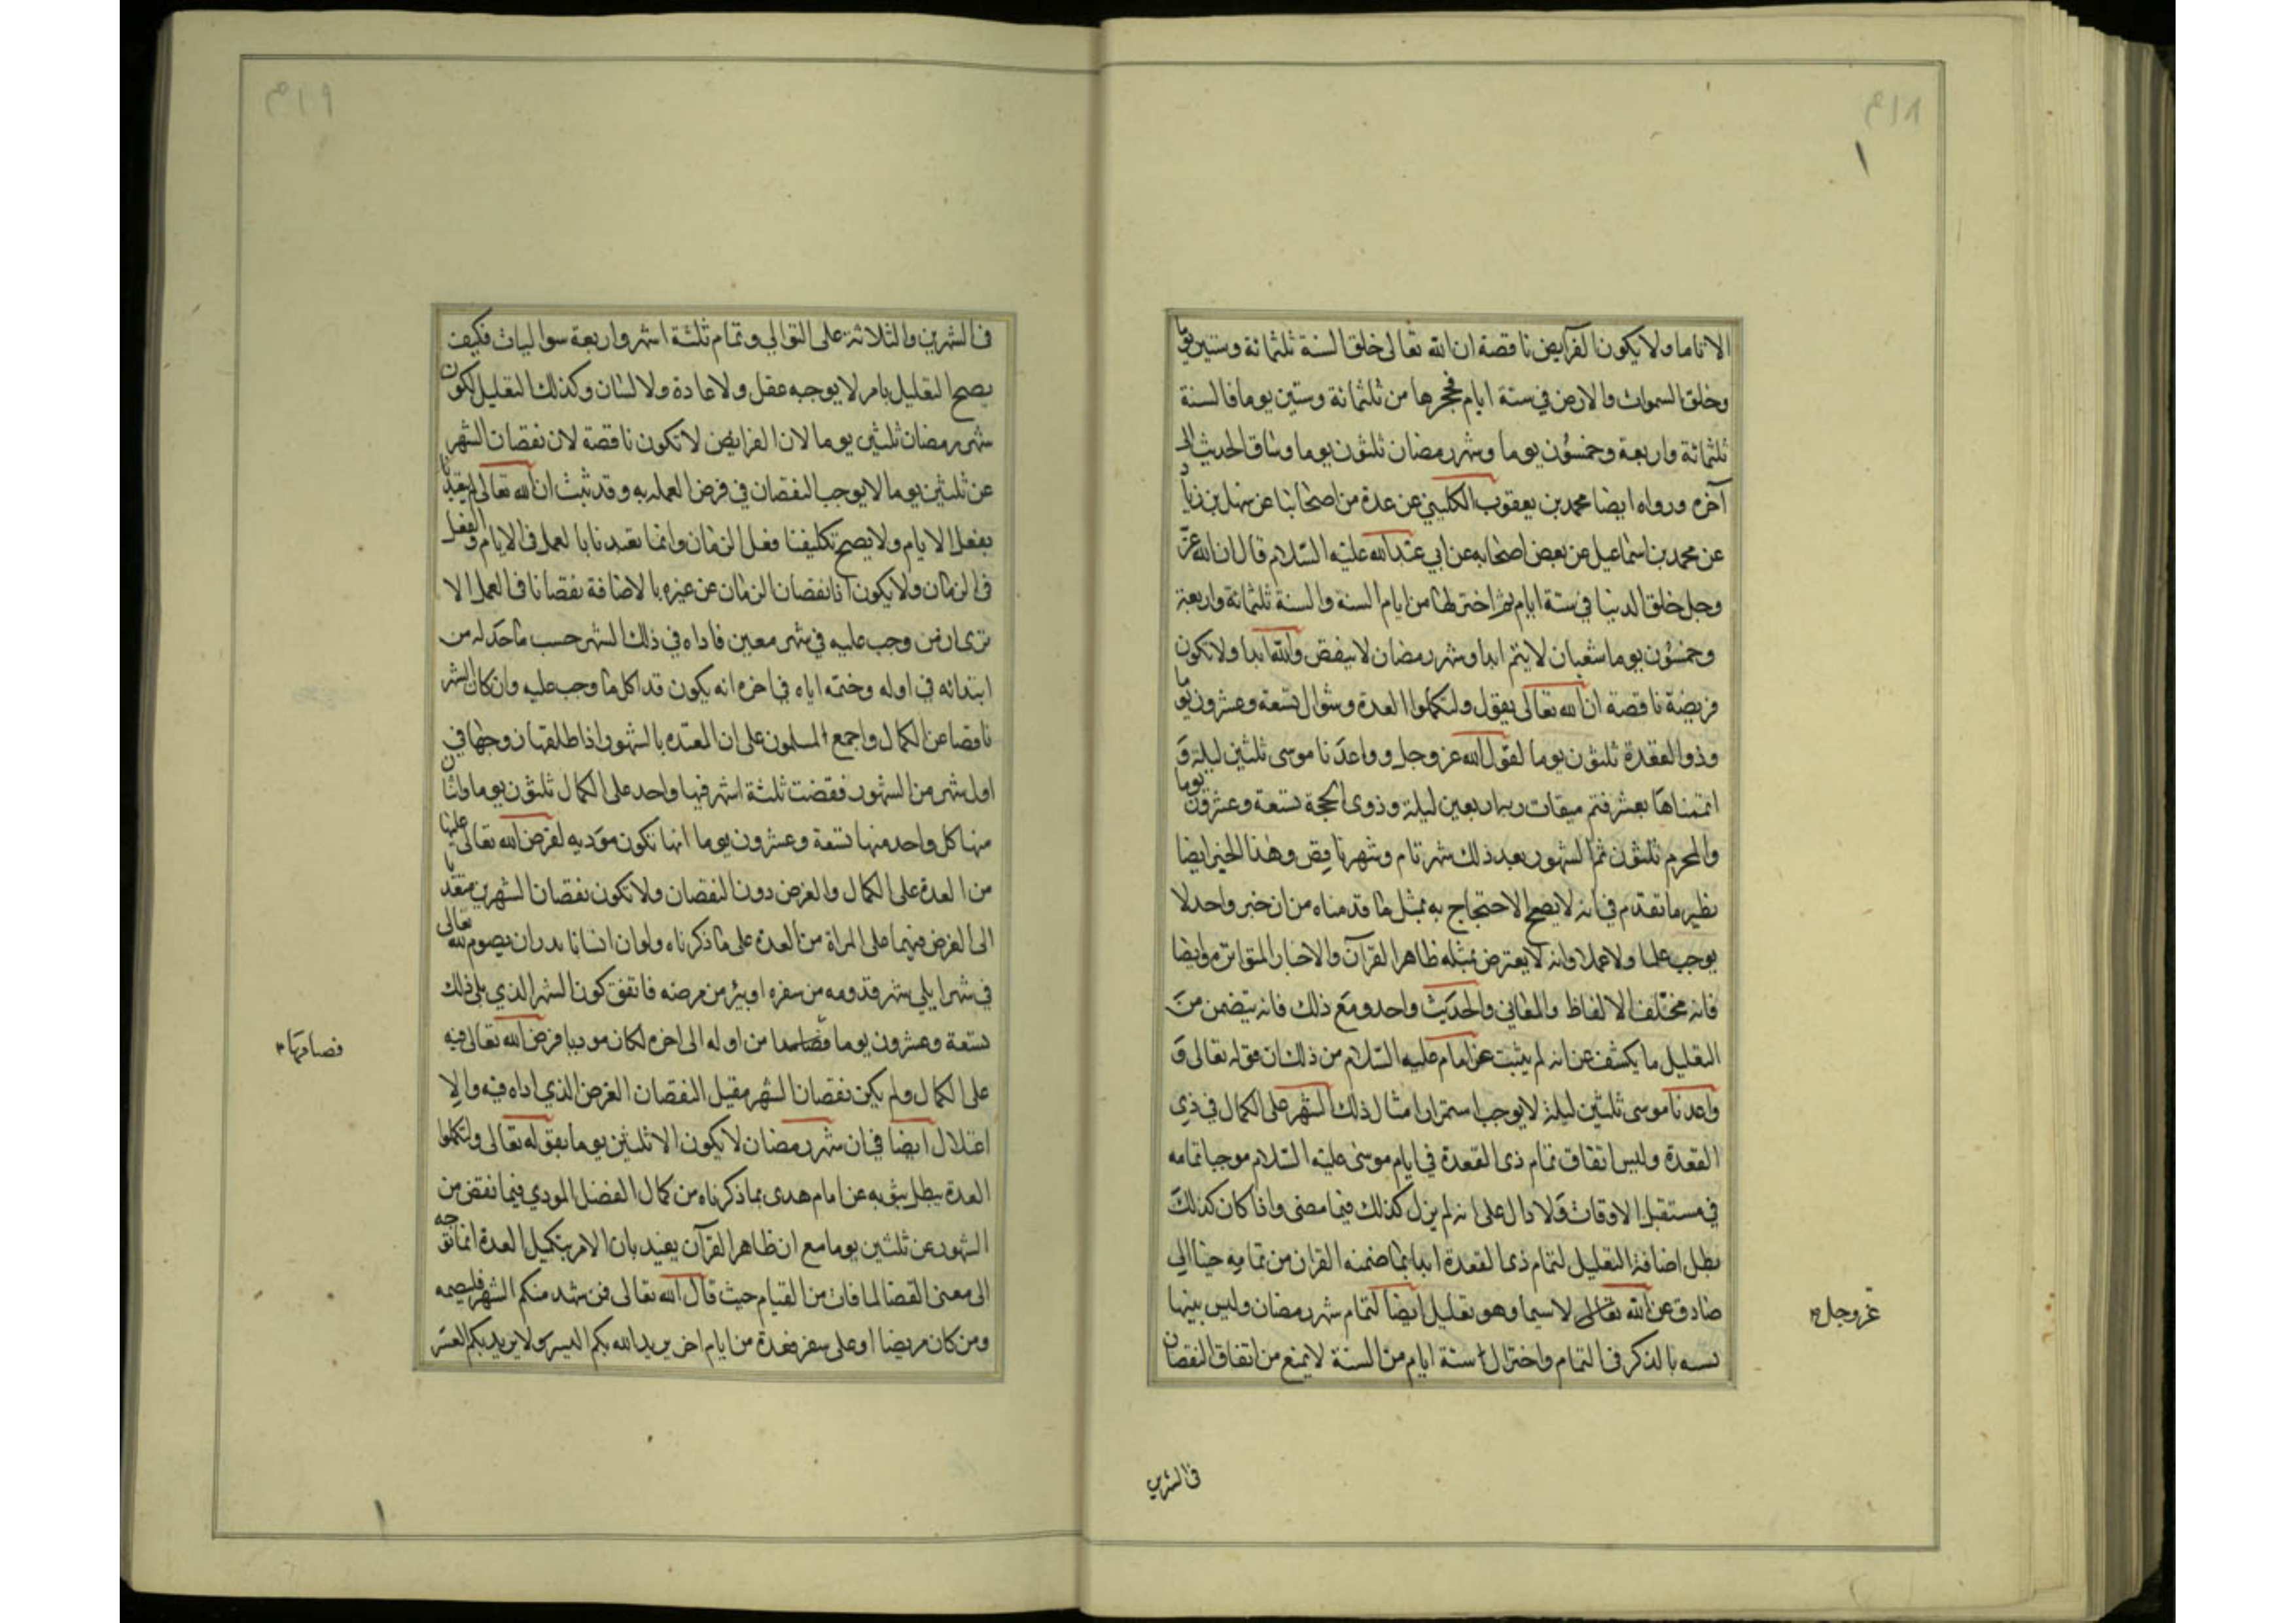 ٣١٨
١
الا تاما ولا يكون الفرايض ناقصة ان الله تعالى خلق السنة ثلثمائة وستين يوما
وخلق السموات والارض في ستة ايام فحجرها من ثلثمائة وستين يوما فالسنة
ثلثمائة واربعة وخمسون يوما وشهر رمضان ثلثون يوما وساق الحديث الى
آخره ورواه ايضا محمد بن يعقوب الكليني عن عدة من اصحابنا عن سهل بن زياد
عن محمد بن اسماعيل عن بعض اصحابه عن ابي عبد الله عليه السلام قال ان الله عز
وجل خلق الدنيا في ستة ايام ثم اختزلها من ايام السنة والسنة ثلثمائة واربعة
وخمسون يوما شعبان لا يتم ابدا وشهر رمضان لا ينقص والله ابدا ولا تكون
فريضة ناقصة ان الله تعالى يقول ولتكملوا العدة وشوال تسعة وعشرون يوما
وذو القعدة ثلثون يوما لقول الله عز وجل وواعدنا موسى ثلثين ليلة و
اتممناها بعشر فتم ميقات ربه اربعين ليلة وذوى الحجة تسعة وعشرون يوما
والمحرم ثلثون ثم الشهور بعد ذلك شهر تام وشهر ناقص وهذا الخبر ايضا
نظير ما تقدم في انه لا يصح الاحتجاج به بمثل ما قدمناه من ان خبر واحد لا
يوجب علما ولا عملا وانه لا يعترض بمثله ظاهر القرآن والاخبار المتواترة وايضا
فانه مختلف الالفاظ والمعاني والحديث واحد ومع ذلك فانه يتضمن من
التعليل ما يكشف عن انه لم يثبت عن امام عليه السلام من ذلك ان قوله تعالى و
واعدنا موسى ثلثين ليلة لا يوجب استمرار امثال ذلك الشهر على الكمال في ذي
القعدة وليس اتفاق تمام ذى القعدة في ايام موسى عليه السلام موجبا تمامه
في مستقبل الاوقات ولا دال على انه لم يزل كذلك فيما مضى واذا كان كذلك
بطل اضافة التعليل لتمام ذى القعدة ابدا بما ضمنه القران من تمامه حينا الي
صادق عن الله تعالى لا سيما وهو تعليل ايضا لتمام شهر رمضان وليس بينها
نسبه بالذكر في التمام واختزال ستة ايام من السنة لا يمنع من اتفاق النقصان
عز وجل
في الشهرين
٣١٩
في الشهرين والثلاثة على التوالي وتمام ثلثة اشهر واربعة متواليات فكيف
يصح التعليل بامر لا يوجبه عقل ولا عادة ولا لسان وكذلك التعليل لكون
شهر رمضان ثلثين يوما لان الفرايض لا تكون ناقصة لان نقصان الشهر
عن ثلثين يوما لا يوجب النقصان في فرض العمل به وقد ثبت ان الله تعالى لم يتعبدنا
بفعل الايام ولا يصح تكليفنا فعل الزمان وانما تعبدنا بالعمل في الايام والفعل
في الزمان ولا يكون اذا نقصان الزمان عن غيره بالاضافة نقصانا في العمل الا
ترى ان من وجب عليه في شهر معين فاداه في ذلك الشهر حسب ما حد له من
ابتدائه في اوله وختمه اياه في اخره انه يكون قد اكمل ما وجب عليه وان كان الشهر
ناقصا عن الكمال واجمع المسلمون على ان المعتده بالشهور اذا طلقها زوجها في
اول شهر من الشهور فقضت ثلثة اشهر فيها واحد على الكمال ثلثون يوما واثنان
منها كل واحد منها تسعة وعشرون يوما انها تكون مؤديه لفرض الله تعالى عليها
من العدة على الكمال والفرض دون النقصان ولا تكون نقصان الشهرين متعديا
الى الفرض فيهما على المراة من العدة على ما ذكرناه ولو ان انسانا نذر ان يصوم لله تعالى
في شهر ايلي شهر قدومه من سفره او بره من مرضه فاتفق كون الشهر الذي يلي ذلك
تسعة وعشرون يوما من اوله الى اخره لكان موديا فرض الله تعالى فيه
على الكمال ولم يكن نقصان الشهر مقيل النقصان الفرض الذي اداه فيه والا
اعتلال ايضا في ان شهر رمضان لا يكون الا ثلثين يوما بقوله تعالى ولتكملوا
العدة يبطل ثبوته عن امام هدى بما ذكرناه من كمال الفضل المودي فيما نقص من
الشهور عن ثلثين يوما مع ان ظاهر القرآن يفيد بان الامر بتكميل العدة انما توجه
الى معنى القضا لما فات من الصيام حيث قال الله تعالى فمن شهد منكم الشهر فليصمه
ومن كان مريضا او على سفر فعدة من ايام اخر يريد الله بكم اليسر ولا يريد بكم العسر
فصامها
١